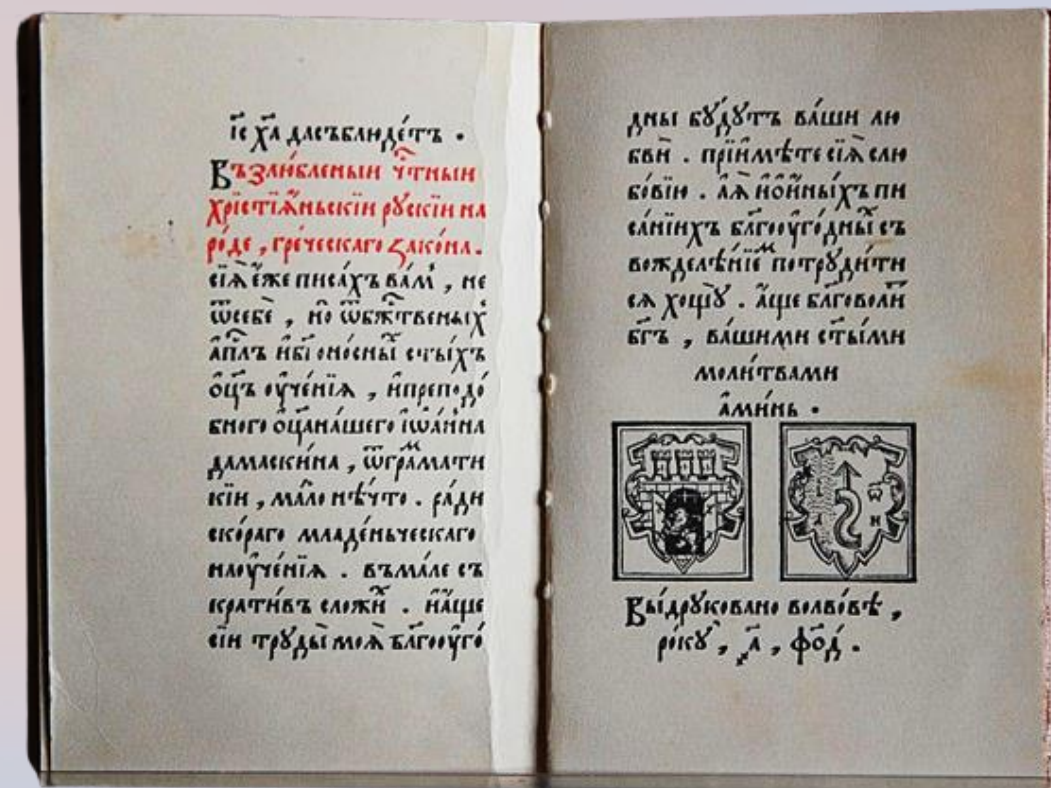 і҃с х҃а дасъблюде́тъ .
Възлю́бленыи ч҃тныи
хрїстїѧ́ньскїи рꙋ́скїи на
ро́де , гре́ческаго зако́на .
сїѧ̀ е҆́же писа́хъ ва́м , не
ѿсебѐ , но ѿбж҃твеныⷯ
а҆п҃лъ и҆бг҃оно́сныⷯ ст҃ы́хъ
ѻ҆ц҃ъ оу҆че́нїѧ , и҆преподо́
бного ѻ҆ц҃ана́шего іѡа́нна
дамаски́на , ѿгра́мⷨати
кїи , ма́ло нѣ́что . ра́ди
ско́раго младе́ньческаго
наоу҆че́нїѧ . въма́ле съ
крати́въ сложи́х . и҆а҆́ще
сїи трꙋды̀ моѧ̀ бл҃гооуго́
дны бꙋ́дꙋтъ ва́ши лю
бвѝ . прїи҆мѣ́те сїѧ̀ слю
бо́вїю . а҆ѧ҆̀ и҆ѻ҆и҆ны́хъ пи
са́нїихъ бл҃гооуго́дныⷯ съ
вожделѣ́нїеⷨ потрꙋди́ти
сѧ хощꙋ̀ . а҆́ще бл҃говоли́т
бг҃ъ , ва́шими ст҃ы́ми
моли́твами
а҆ми́нь .
ѡ
л н
Вы́дрꙋковано волво́вѣ ,
ро́кꙋ , ҂а҃ , фо҃д .